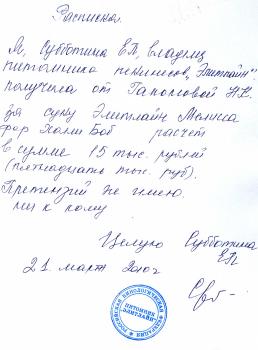 Расписка.
Я, Субботина Е.П., владелец
питомника пекинесов "Элитлайн"
получила от Гапоновой Н.К.
за суку Элитлайн Мелиса
фор Холли Боб расчёт
в сумме 15 тыс. рублей
(пятнадцать тыс. руб).
Претензий не имею.
ни к кому
Целую Субботина
ЕП
21 март
РОССИЙСКАЯ КИНОЛОГИЧЕСКАЯ ФЕДЕРАЦИЯ
ПИТОМНИК
"ЭЛИТ-ЛАЙН"